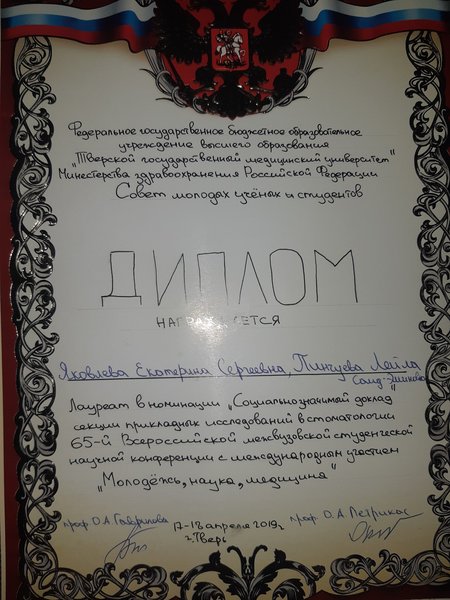 Федеральное государственное бюджетное образовательное
учреждение высшего образования
"Тверской государственный медицинский университет"
Министерства здравоохранения Российской Федерации
Совет молодых учёных и студентов
ДИПЛОМ
НАГРАЖДАЕТСЯ
Яковлева Екатерина Сергеевна, Пинчуева Лейла
Лауреат в номинации „Социальнозначимый доклад
секции прикладных исследований в стоматологии
65-й Всероссийской межвузовской студенческой
научной конференции с международным участием
„Молодёжь, наука, медицина"
проф. О.А. Гаврилова
17-18 апреля 2019г
г.Тверь
проф. О.А. Петрикас